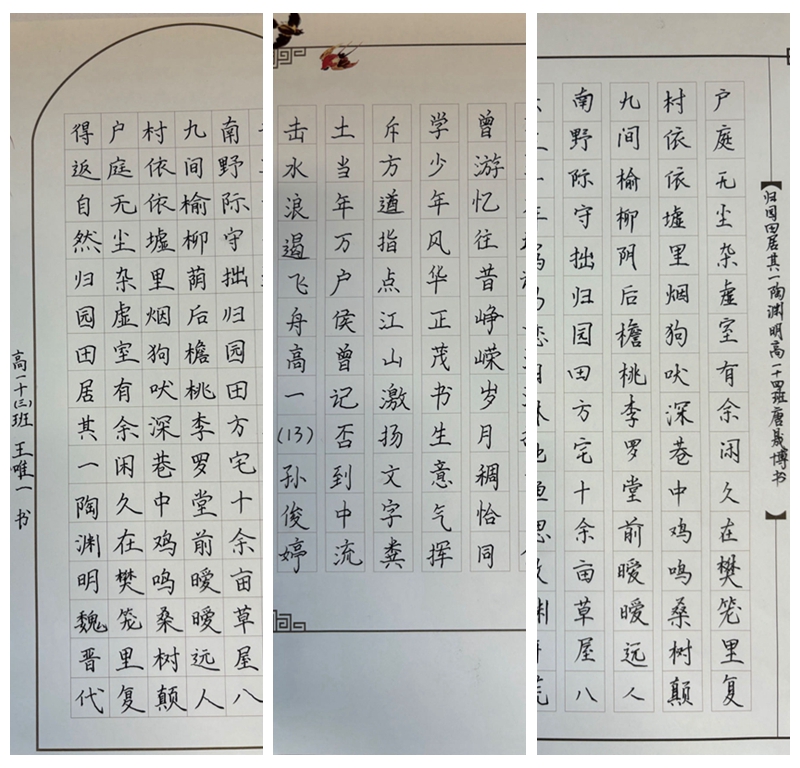 南野际守拙归园田方宅十余亩草屋八
九间榆柳荫后檐桃李罗堂前暧暧远人
村依依墟里烟狗吠深巷中鸡鸣桑树颠
户庭无尘杂虚室有余闲久在樊笼里复
得返自然归园田居其一陶渊明魏晋代
高一十(三)班 王唯一 书
曾游忆往昔峥嵘岁月稠恰同
学少年风华正茂书生意气挥
斥方遒指点江山激扬文字粪
土当年万户侯曾记否到中流
击水浪遏飞舟高一(13)孙俊婷
南野际守拙归园田方宅十余亩草屋八
九间榆柳阴后檐桃李罗堂前暧暧远人
村依依墟里烟狗吠深巷中鸡鸣桑树颠
户庭无尘杂虚室有余闲久在樊笼里复
【归园田居其一陶渊明高一十四班唐晟博书】